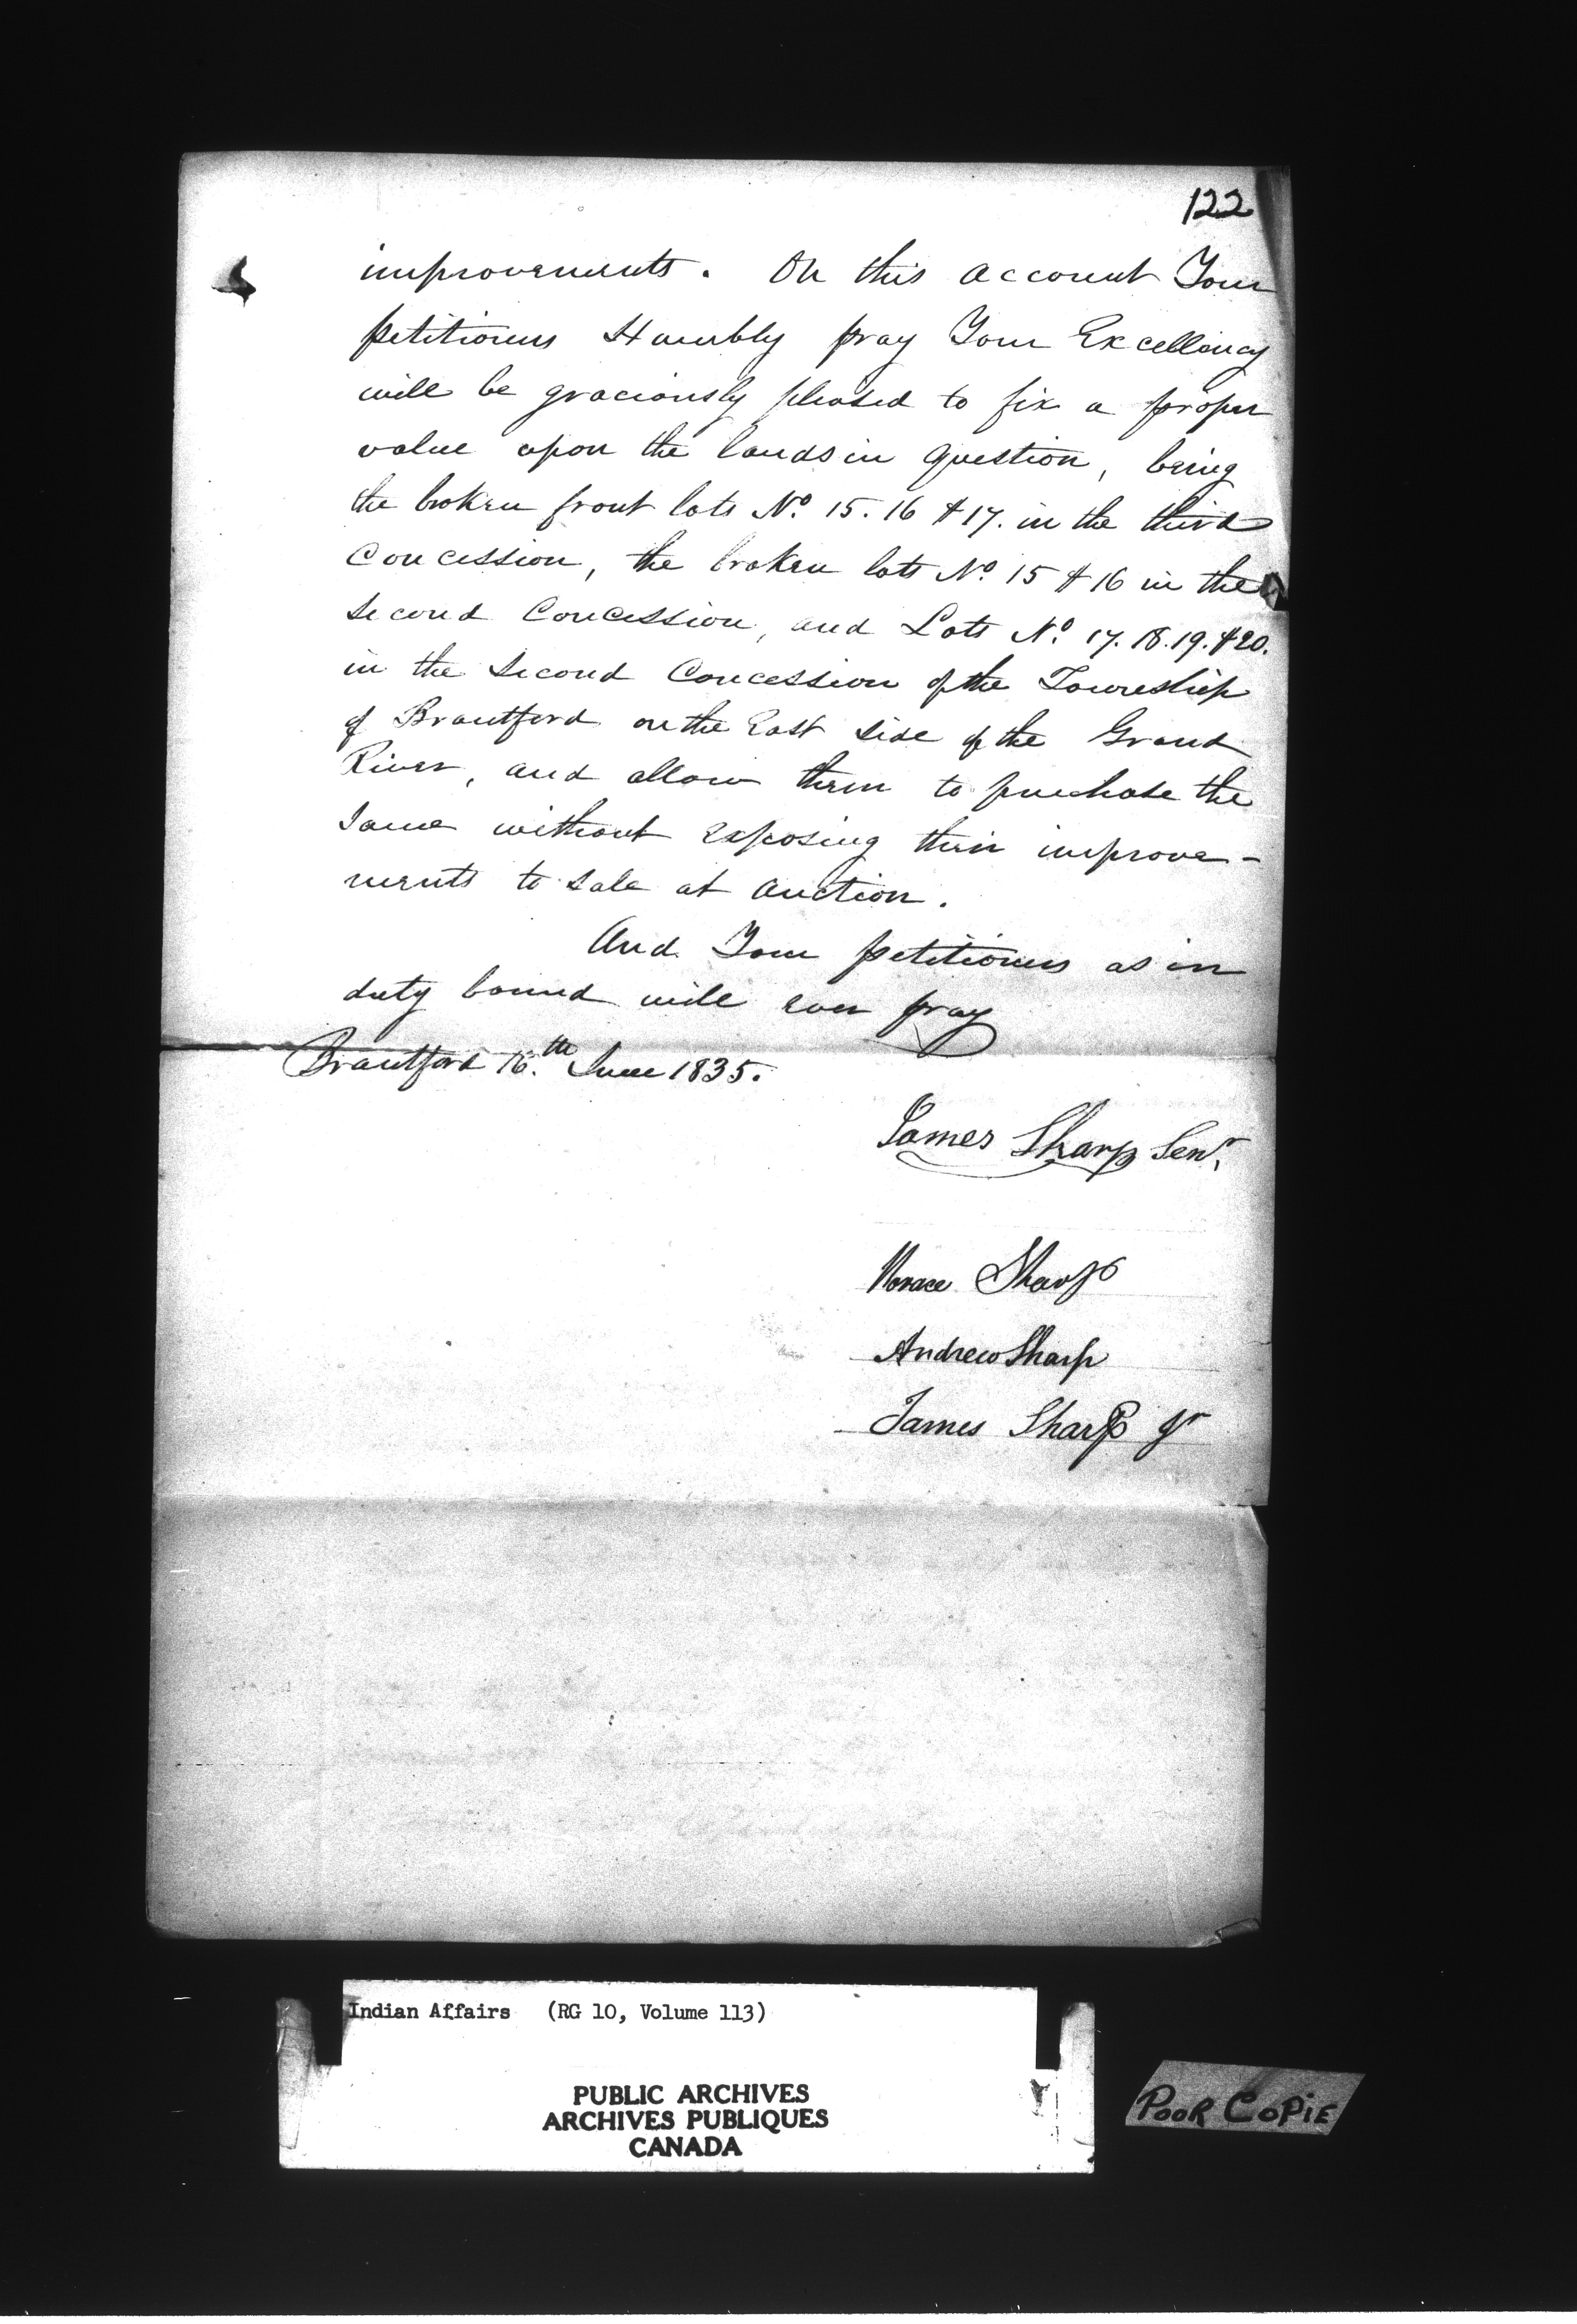 122
improvements. On this account Your
petitioners Humbly pray Your Excellency
will be graciously pleased to fix a proper
value upon the lands in question, being
the broken front lots No. 15. 16 & 17. in the third
Concession, the broken lots No. 15 & 16 in the
Second Concession, and Lots No. 17. 18. 19. & 20.
in the Second Concession of the Township
of Brantford on the East side of the Grand
River, and allow them to purchase the
Same without exposing their improve-
ments to Sale at Auction.
And Your petitioners as in
duty bound will ever pray
Brantford 16.th June 1835.
James Sharp Senr,
Horace Sharp
Andrew Sharp
James Sharp Jr
Indian Affairs (RG 10, Volume 113)
PUBLIC ARCHIVES
ARCHIVES PUBLIQUES
CANADA
POOR COPIE